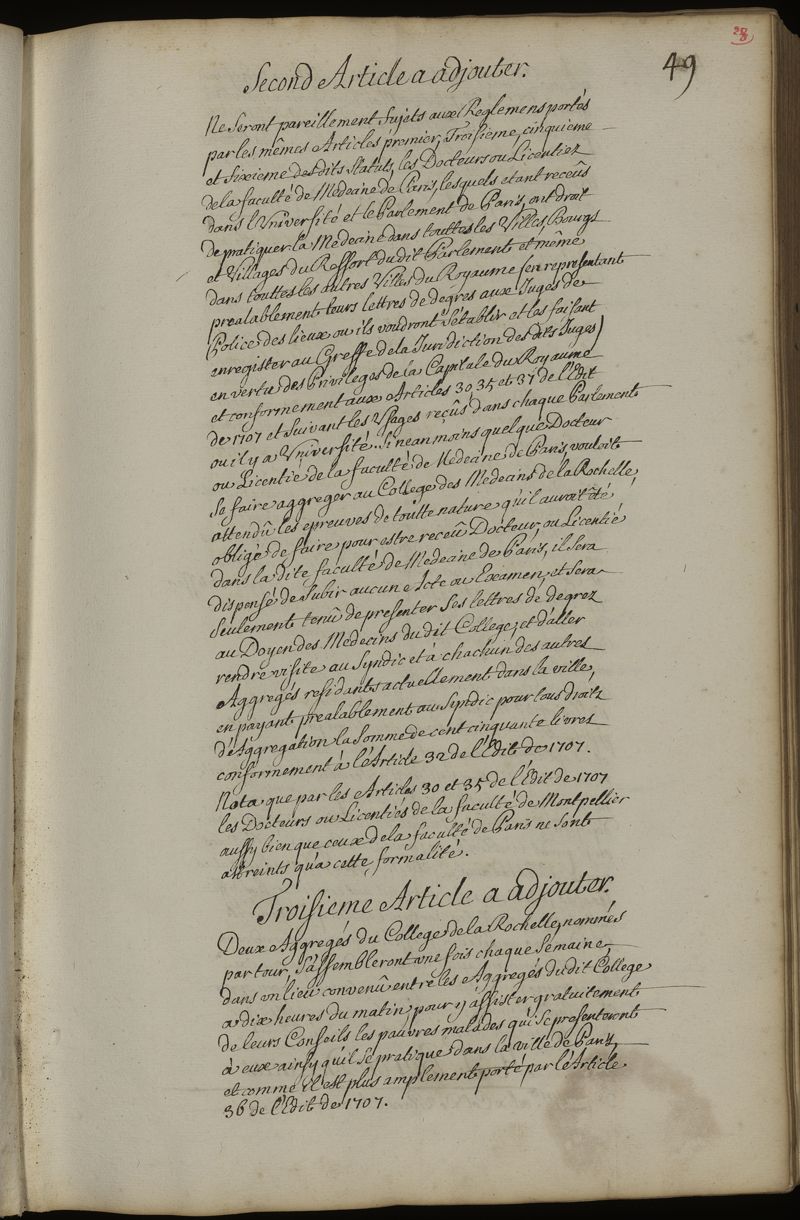 28
49
Second Article a adjouter.
Ne Seront pareillement Sujets aux Reglemens portés
par les mêmes Articles premier, Troisieme, cinquieme
et Sixieme desdits Statuts, les Docteurs ou Licentiez
de la faculté de Medecine de Paris, lesquels etant receûs
dans l'Université et le Parlement de Paris, ont droit
de pratiquer la Medecine dans touttes les Villes, Bourgs
et Villages du Ressort du dit Parlement et même
dans touttes les autres Villes du Royaume (en representant
prealablement leurs lettres de degres aux Juges de
Police des lieux ou ils voudront S'établir et les faisant
enregister au Greffe de la Jurisdiction des dits Juges)
en vertu des Privileges de la Capitale du Royaume
et conformement aux Articles 30 35 et 37 de l'Edit
de 1707 et Suivant les Usages reçûs dans chaque Parlement
ou il y a Université. Si neanmoins quelque Docteur
ou Licentié de la faculté de Medecine de Paris, vouloit
Se faire aggreger au College des Medecins de la Rochelle,
attendû les epreuves de toutte nature qu'il auroit été
obligé de faire pour estre receû Docteur, ou Licentié
dans la dite faculté de Medecine de Paris, il Sera
dispensé de Subir aucun e Acte ou Examen, et Sera
Seulement tenû de presenter Ses lettres de degrez
au Doyen des Medecins du dit College, et d'aller
rendre visite au Syndic et à chachun des autres
Aggregés residants actuellement dans la ville,
en payant prealablement au Syndic pour tous droits
d'Aggregation la Somme de cent cinquante livres
conformement à l'Article 32 de l'Edit de 1707.
Nota que par les Articles 30 et 35 de l'Edit de 1707
les Docteurs ou Licentiés de la faculté de Montpellier
aussy bien que ceux de la faculté de Paris ne Sont
astreints qu'a cette formalité.
Troisieme Article a adjouter.
Deux Aggregés du College de la Rochelle, nommés
par tour, S'assembleront une fois chaque Semaine,
dans un lieu convenû entre les Aggregés du dit College
a dix heures du matin, pour y assister gratuitement
de leurs Conseils les pauvres malades qui Se presenteront
à eux ainsy qu'il Se pratique dans la ville de Paris,
et comme il est plus amplement porté par l'Article
36 de l'Edit de 1707.